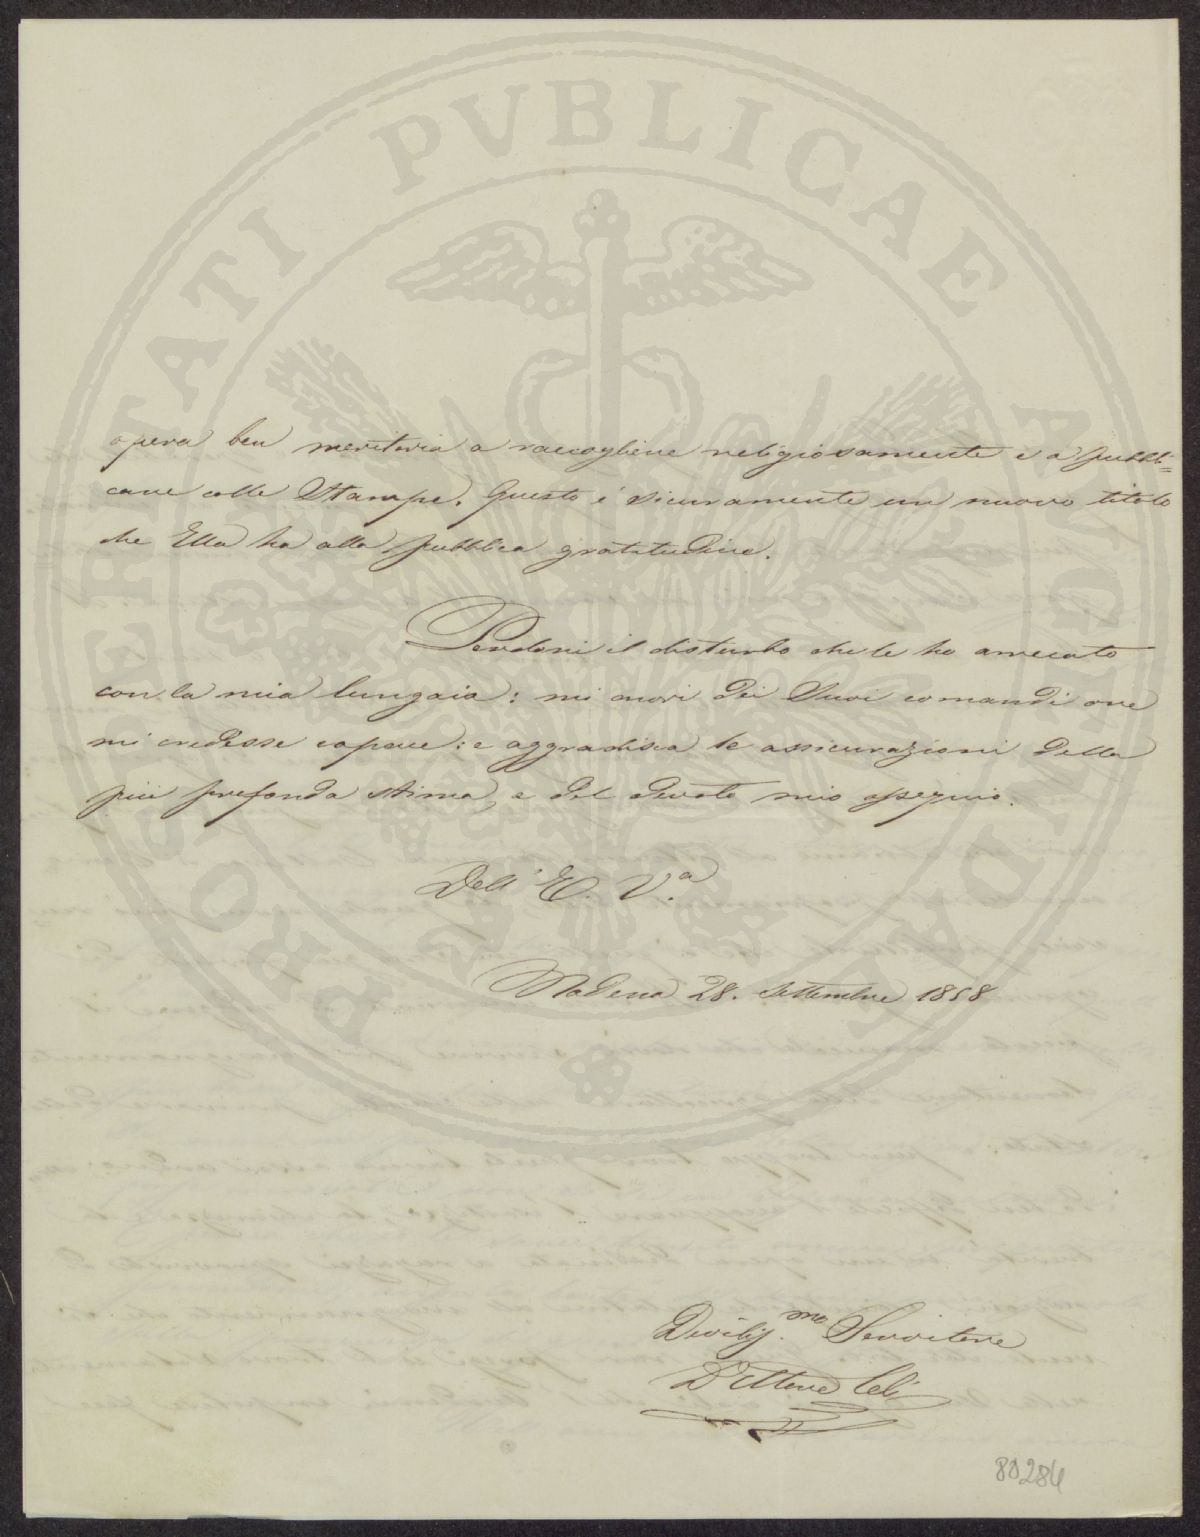 PROSPERITATI PVBLICAE AVGENDAE
opera ben meritoria a raccogliere religiosamente e a pubbli=
care colle Stampe. Questo è sicuramente un nuovo titolo
che Ella ha alla pubblica gratitudine.
Perdoni il disturbo che le ho arrecato
con la mia lungaia: mi onori dei Suoi comandi ove
mi credesse capace: e aggradisca le assicurazioni della
più profonda stima, e del devoto mio ossequio.
Dell' E. V.a
Modena 28. Settembre 1858
Devot.mo Servitore
D Ettore Celi
80284